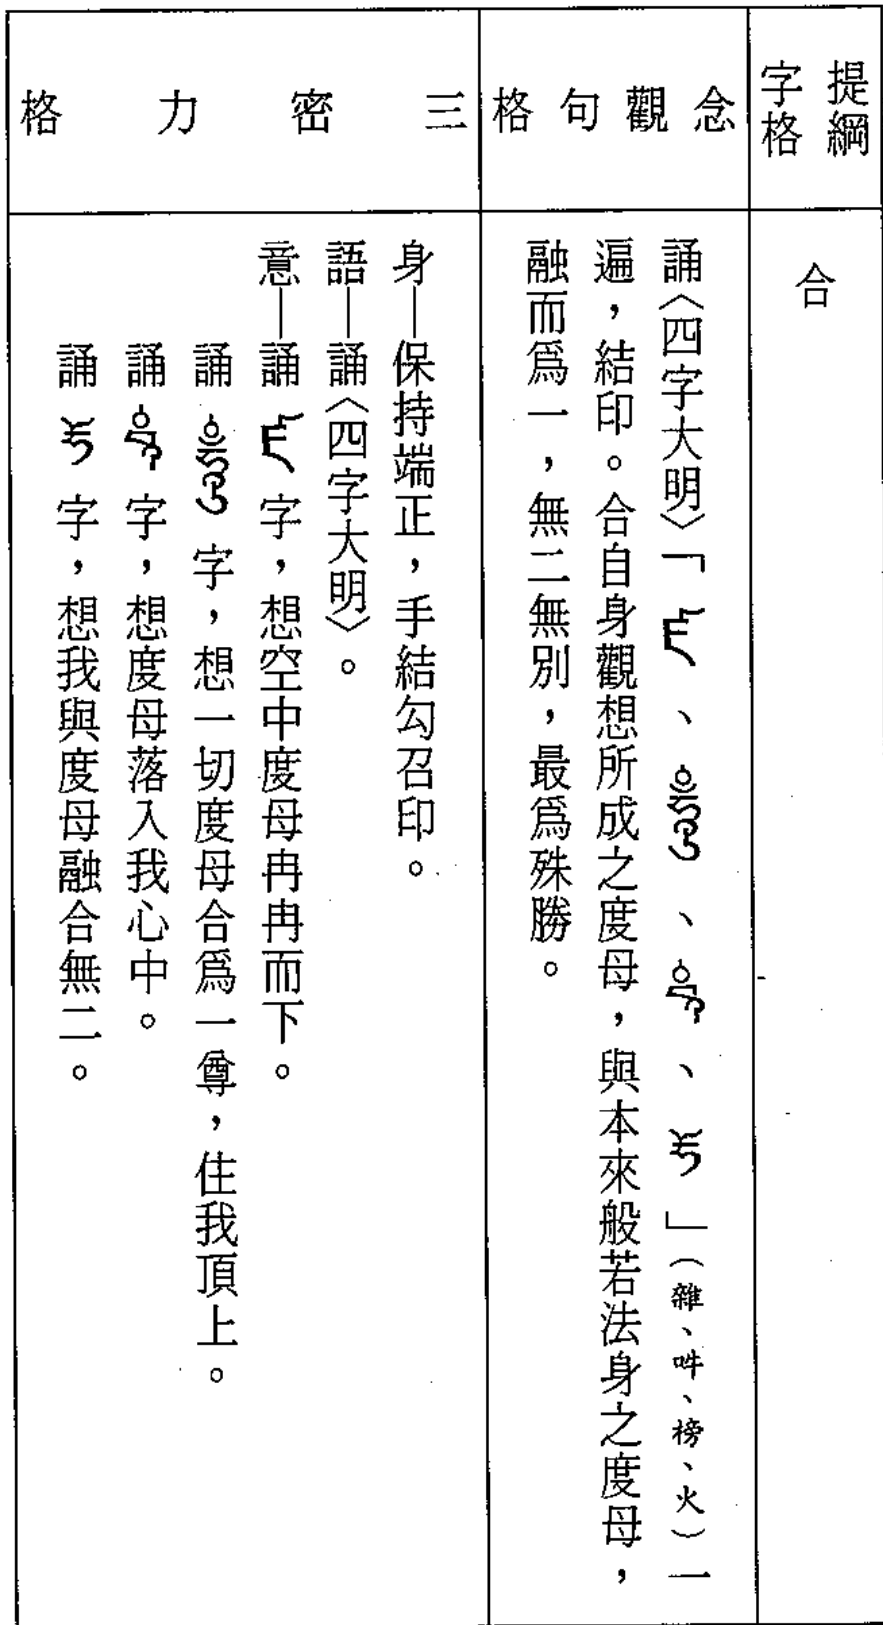 提綱
字格
合
念觀句格
誦〈四字大明〉「ཛ、ཧཱུྃ、བཾ、ཧོ」(雜、吽、榜、火)一
遍，結印。合自身觀想所成之度母，與本來般若法身之度母，
融而爲一，無二無別，最爲殊勝。
三密力格
身—保持端正，手結勾召印。
語—誦〈四字大明〉。
意—誦 ཛ 字，想空中度母冉冉而下。
誦 ཧཱུྃ 字，想一切度母合爲一尊，住我頂上。
誦 བཾ 字，想度母落入我心中。
誦 ཧོ 字，想我與度母融合無二。